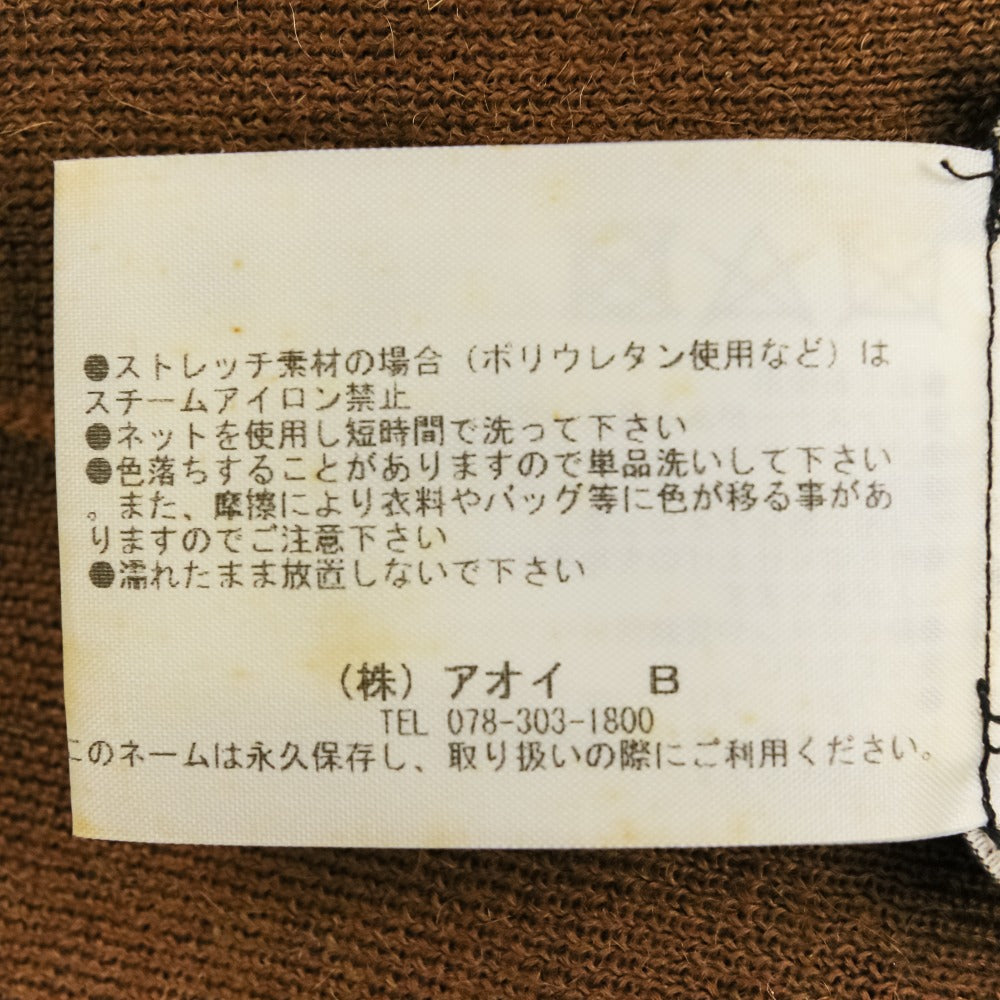 ●ストレッチ素材の場合（ポリウレタン使用など）は
スチームアイロン禁止
●ネットを使用し短時間で洗って下さい
●色落ちすることがありますので単品洗いして下さい
。また、摩擦により衣料やバッグ等に色が移る事があ
りますのでご注意下さい
●濡れたまま放置しないで下さい
（株）アオイ　B
TEL 078-303-1800
このネームは永久保存し、取り扱いの際にご利用ください。